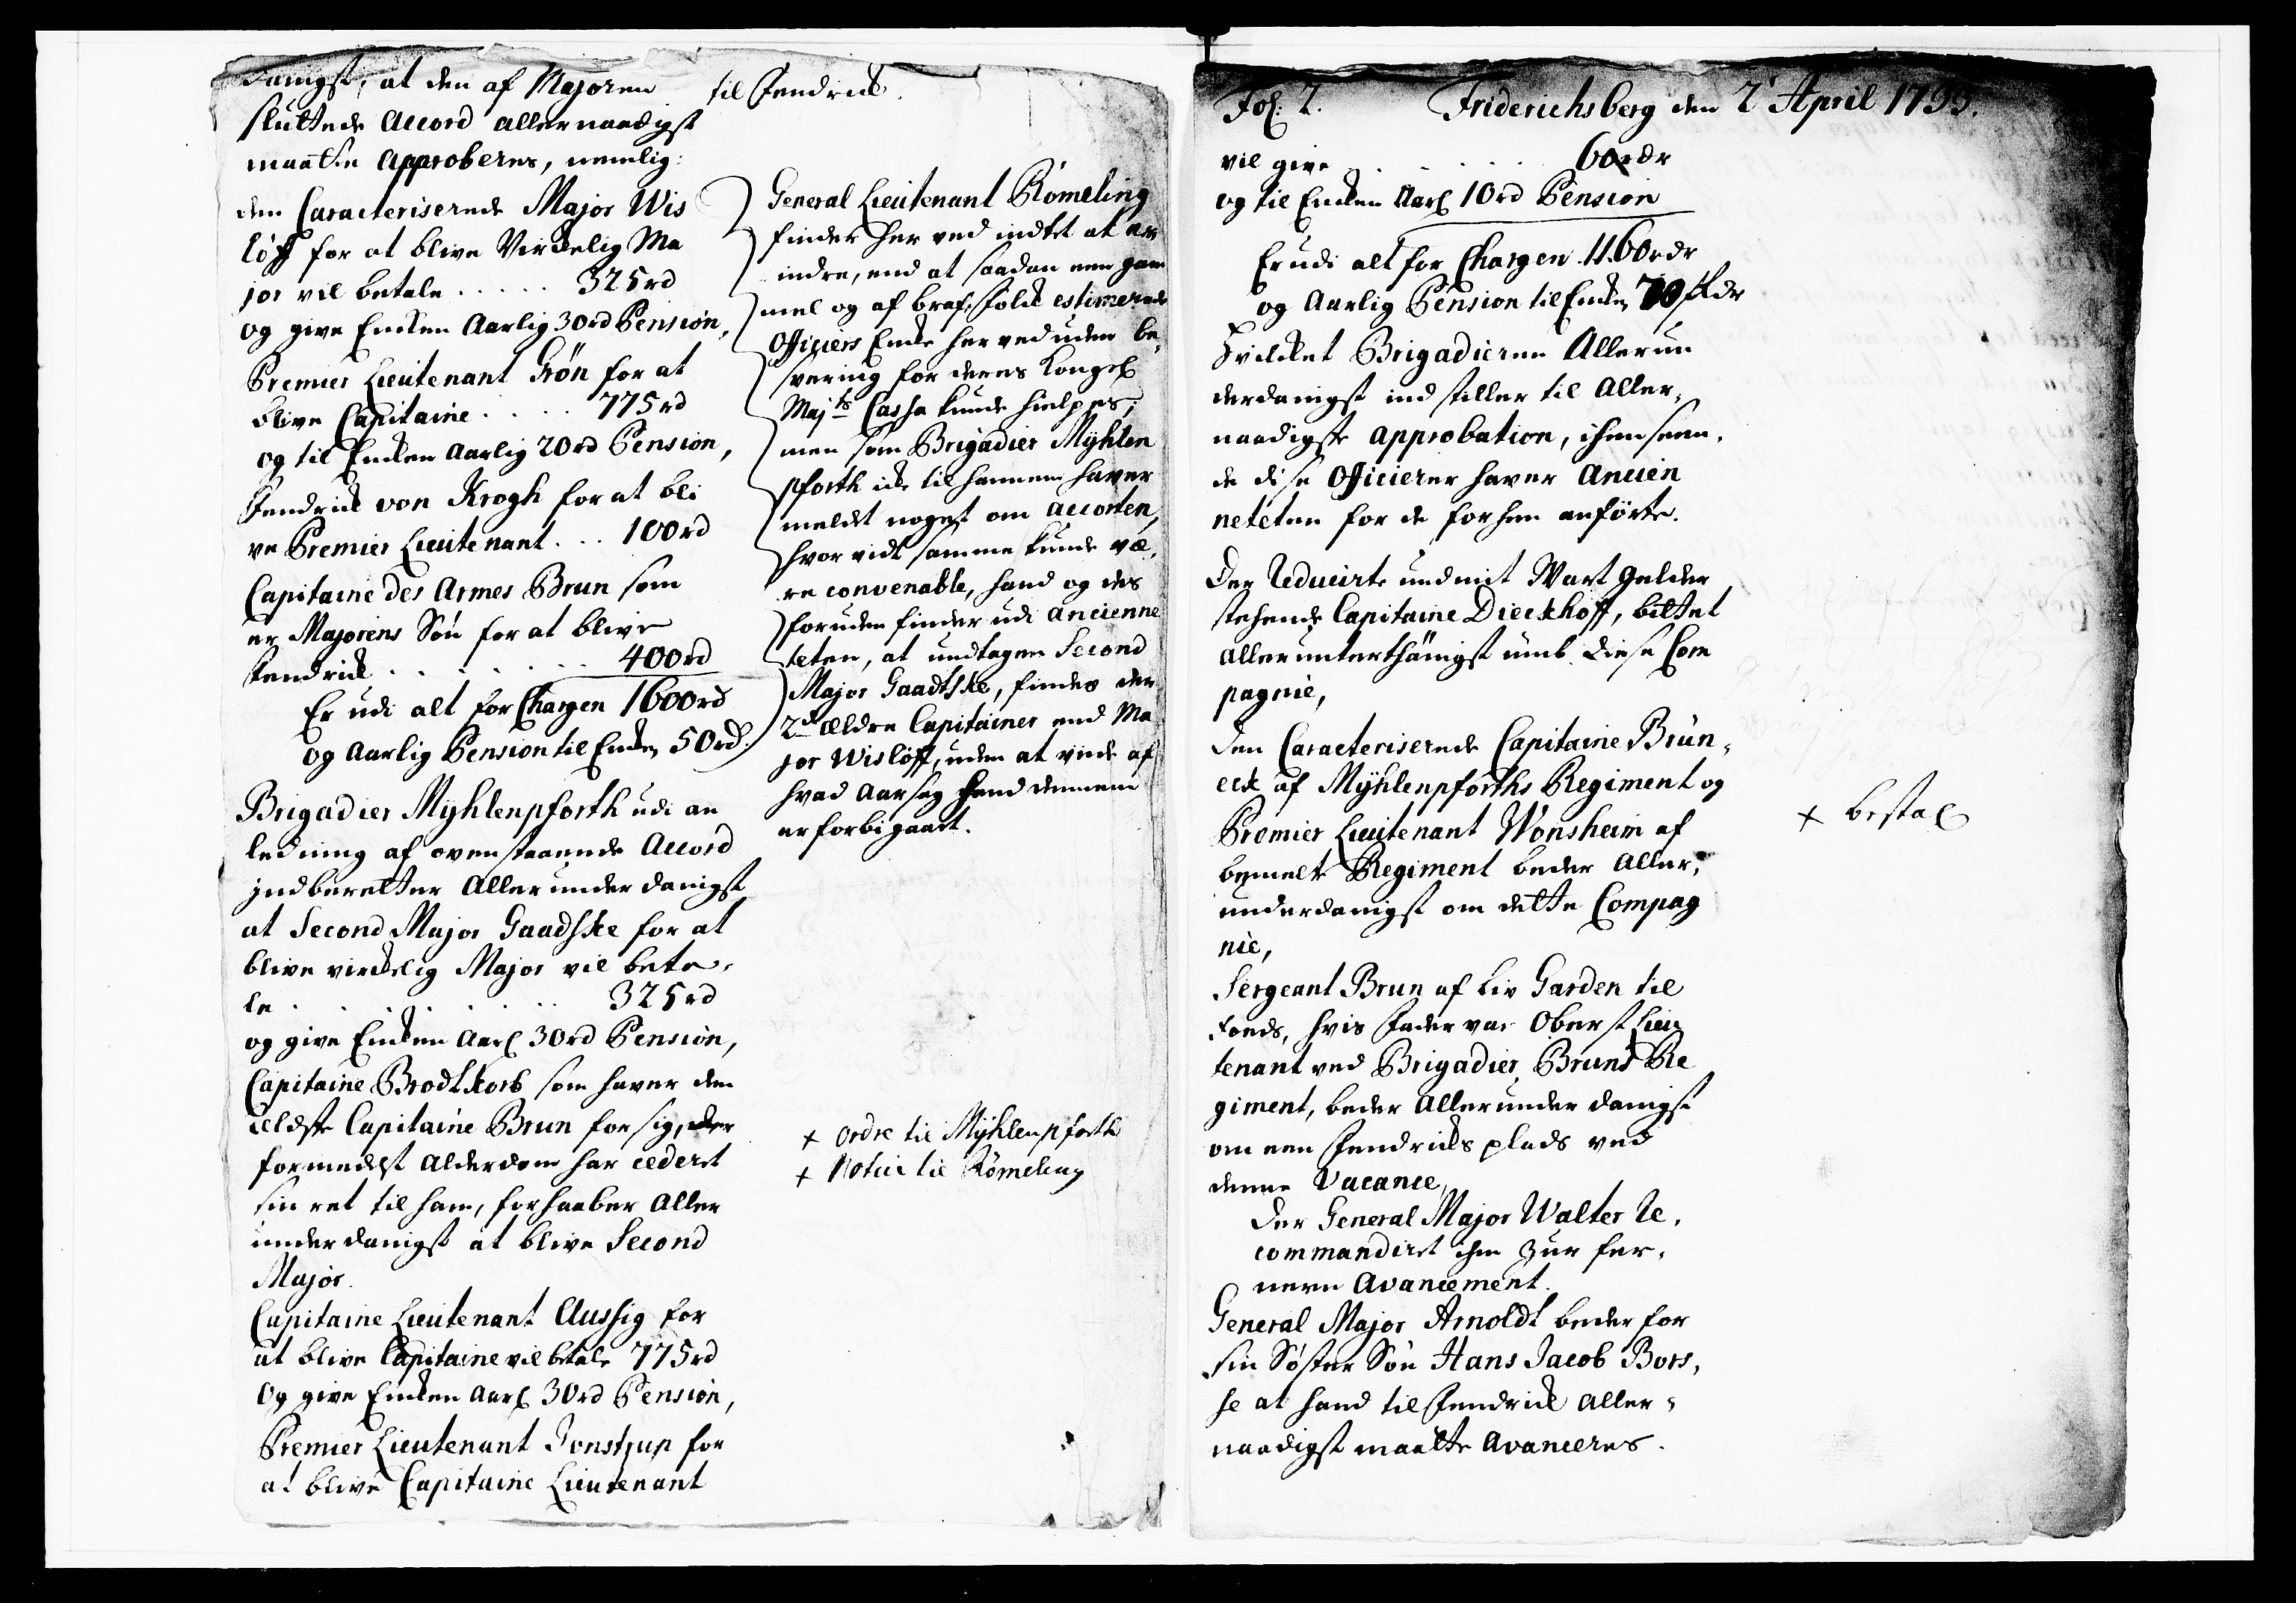 danigst, at den af Majoren
sluttede Accord allernaadigst
maatte Approberes, nemlig:
den Caracteriserede Major Wis
löff for at blive Virkelig Ma
jor vil betale ..... 325rd
og give Enken Aarlig 30rd Pension,
Premier Lieutenant Grön for at
blive Capitaine .... 775rd
og til Enken Aarlig 20rd Pension,
Fendrick von Krogh for at bli
ve Premier Lieutenant... 100rd
Capitaine des Armes Brun som
er Majorens Sön for at blive
Fendrick ...... 400rd
Er udi alt for Chargen 1600rd
og Aarlig Pension til Enken 50rd.
Brigadier Myhlenpforth udi an
ledning af ovenstaaende Accord
indberetter Allerunderdanigst
at Second Major Gaadske for at
blive virkelig Major vil beta-
le ....... 325rd
og give Enken Aarl 30rd Pension,
Capitaine Brodtkorb som haver den
Eldste Capitaine Brun for sig, der
formedelst Alderdom har cederet
sin ret til ham, forhaaber Aller
underdanigst at blive Second
Major.
Capitaine Lieutenant Aussig for
at blive Capitaine vil betale 775rd
Og give Enken Aarl 30rd Pension,
Premier Lieutenant Tonstrup for
at blive Capitaine Lieutenant
til Fendrick.
General Lieutenant Römeling
finder her ved indtet at er
indre, end at saadan een gam
mel og af brafe folk estimerede
Officiers Enke herved uden be-
svering for deres Kongel
Majts Cassa kunde hielpes;
men som Brigadier Myhlen
pforth icke til hannem haver
meldet noget om Accorten,
hvorvidt samme kunde væ-
re convenable, hand og des
foruden finder udi Ancienne
teten, at undtagen Second
Major Gaadtske, findes der
2de Ældre Capitainer end Ma
jor Wislöff, uden at vide af
hvad Aarsag hand dennem
er forbigaaet.
+ Ordre til Myhlenpforth
+ Notice til Römeling
Fol: 2. Friderichsberg den 2t April 1735.
vil give ..... 60rdr
og til Enken Aarl 10rd Pension
Er udi alt for Chargen 1160rdr
og Aarlig Pension til Enken 70 rdr
Hvilket Brigadieren Allerun
derdanigst indstiller til Aller-
naadigste approbation, ihenseen-
de disse Officierer haver Ancien
neteten for de forhen anförte.
Der Reducirte und mit Wart Gelder
stehende Capitaine Dieckhoff, bittet
Allerunterthänigst umb diese Com
pagnie,
Den Caracteriserede Capitaine Brün-
eck af Myhlenpforths Regiment og
Premier Lieutenant Wonsheim af
bemelte Regiment beder Aller-
underdanigst om dette Compag
nie,
Sergeant Brun af Liv Garden til
Foeds, hvis Fader var Oberst Lieu
tenant ved Brigadier Bruns Re
giment, beder Allerunderdanigst
om een Fendricks plads ved
denne Vacance,
Der General Major Walter Re-
commandiret ihm zur fer-
nern Avancement.
General Major Arnoldt beder for
sin Söster Sön Hans Jacob Bors,
se at hand til Fendrick Aller-
naadigst maatte Avanceres.
+ bestal